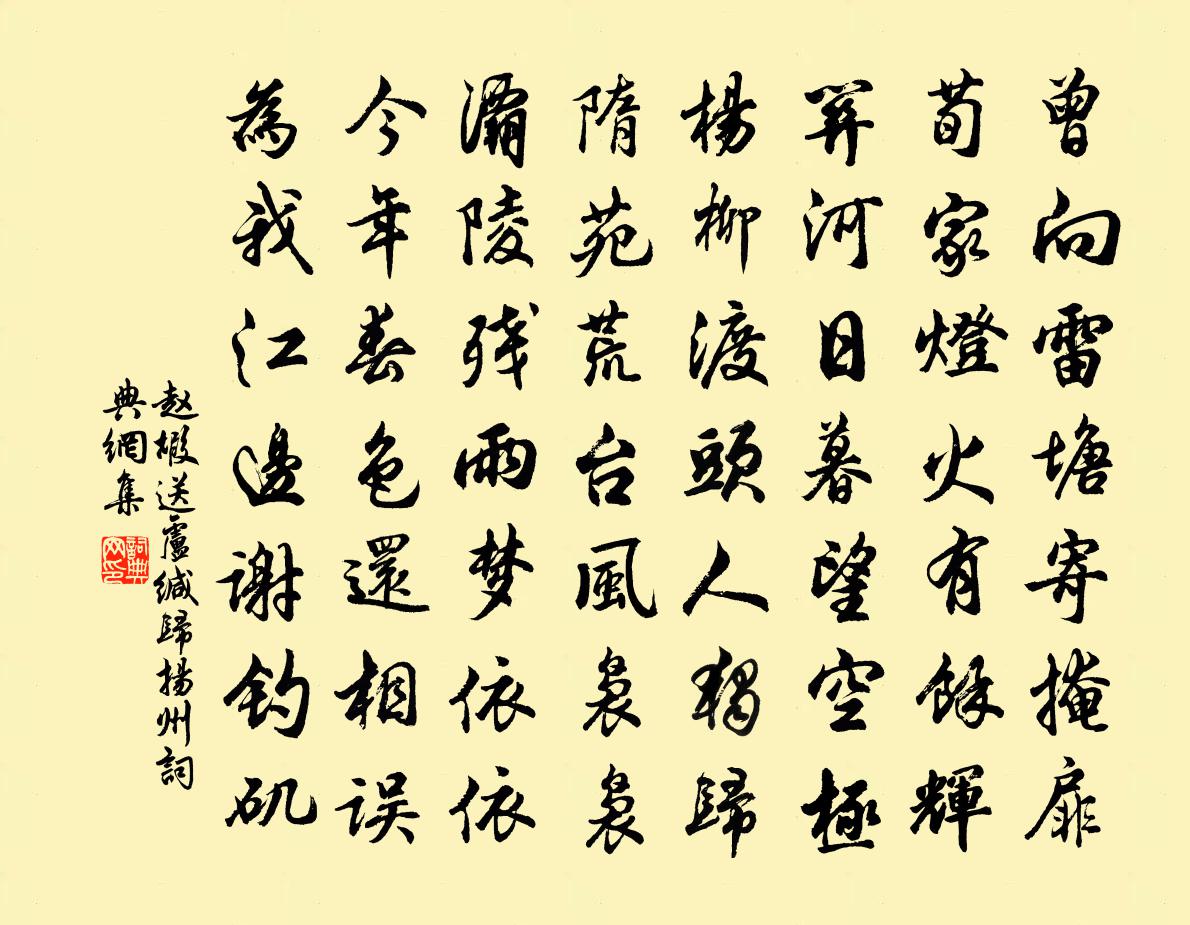 曾向雷塘寄掩扉
荀家燈火有餘輝
關河日暮望空極
楊柳渡頭人獨歸
隋苑荒台風裊裊
灞陵残雨梦依依
今年春色還相误
為我江邊謝钓矶
赵嘏送盧缄歸揚州詞
典網集
詞典网印